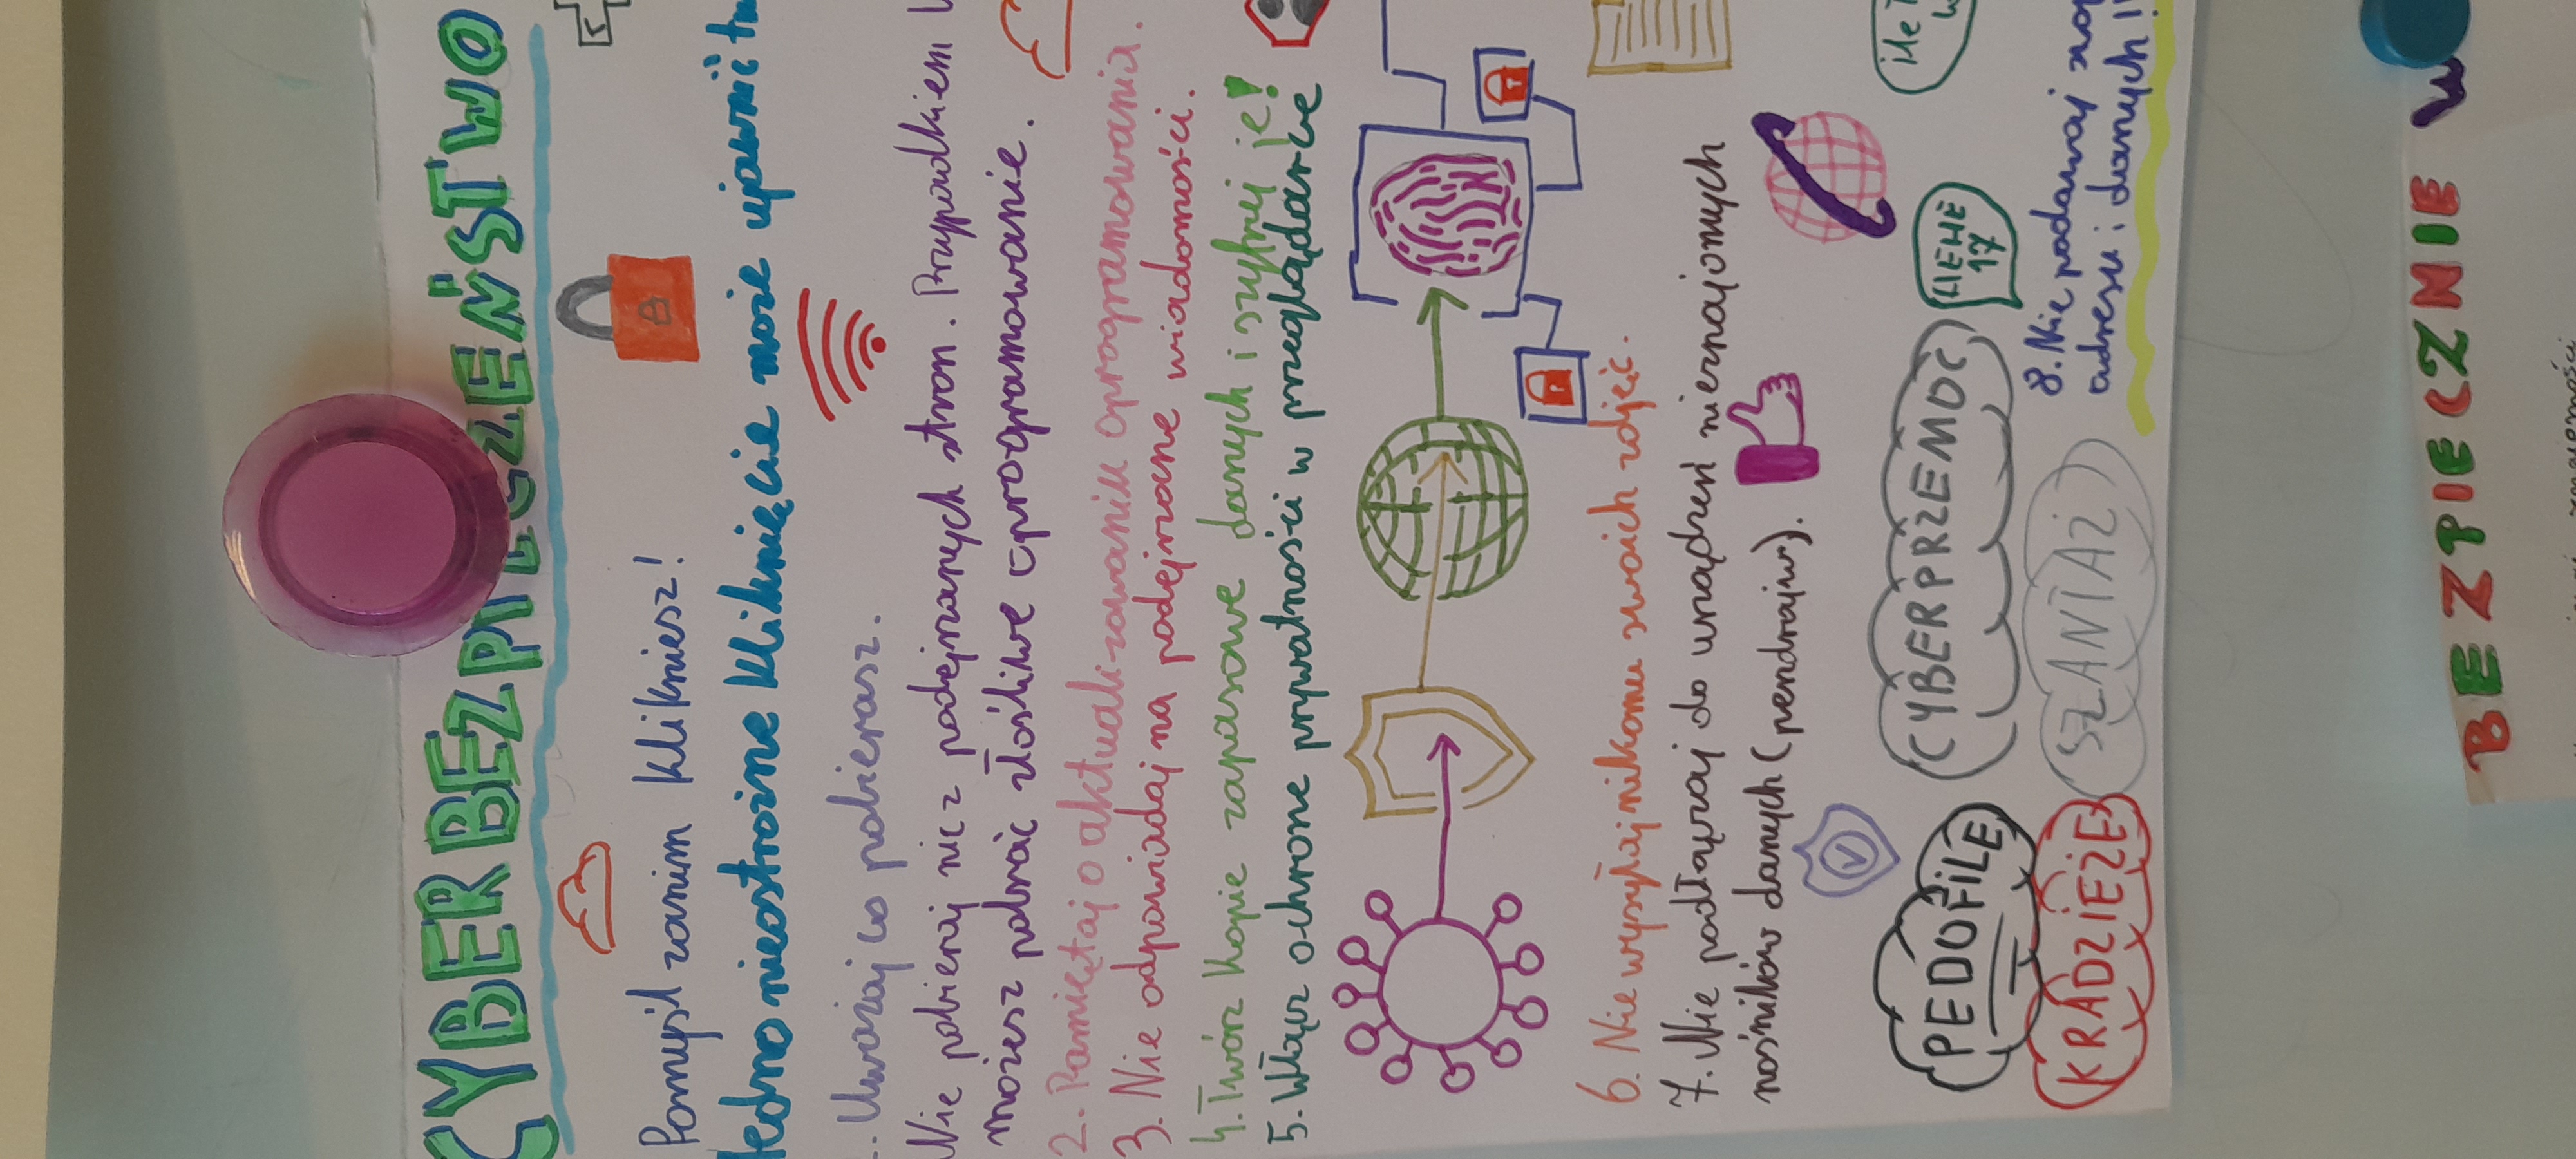 CYBERBEZPIECZEŃSTWO
Pomyśl zanim klikniesz!
Jedno nieostrożne kliknięcie może ujawnić
1. Uważaj co pobierasz.
Nie pobieraj nic z podejrzanych stron. Przypadkiem
możesz pobrać złośliwe oprogramowanie.
2. Pamiętaj o aktualizowaniu oprogramowania.
3. Nie odpowiadaj na podejrzane wiadomości.
4. Twórz kopie zapasowe danych i szyfruj je!
5. Włącz ochronę prywatności w przeglądarce
6. Nie wysyłaj nikomu swoich zdjęć.
7. Nie podłączaj do urządzeń nieznajomych
nośników danych (pendrajw).
PEDOFILE
CYBERPRZEMOC
17
ile
KRADZIEŻE
SZANTAŻ
8. Nie podawaj
adresu i danych
BEZPIECZNIE